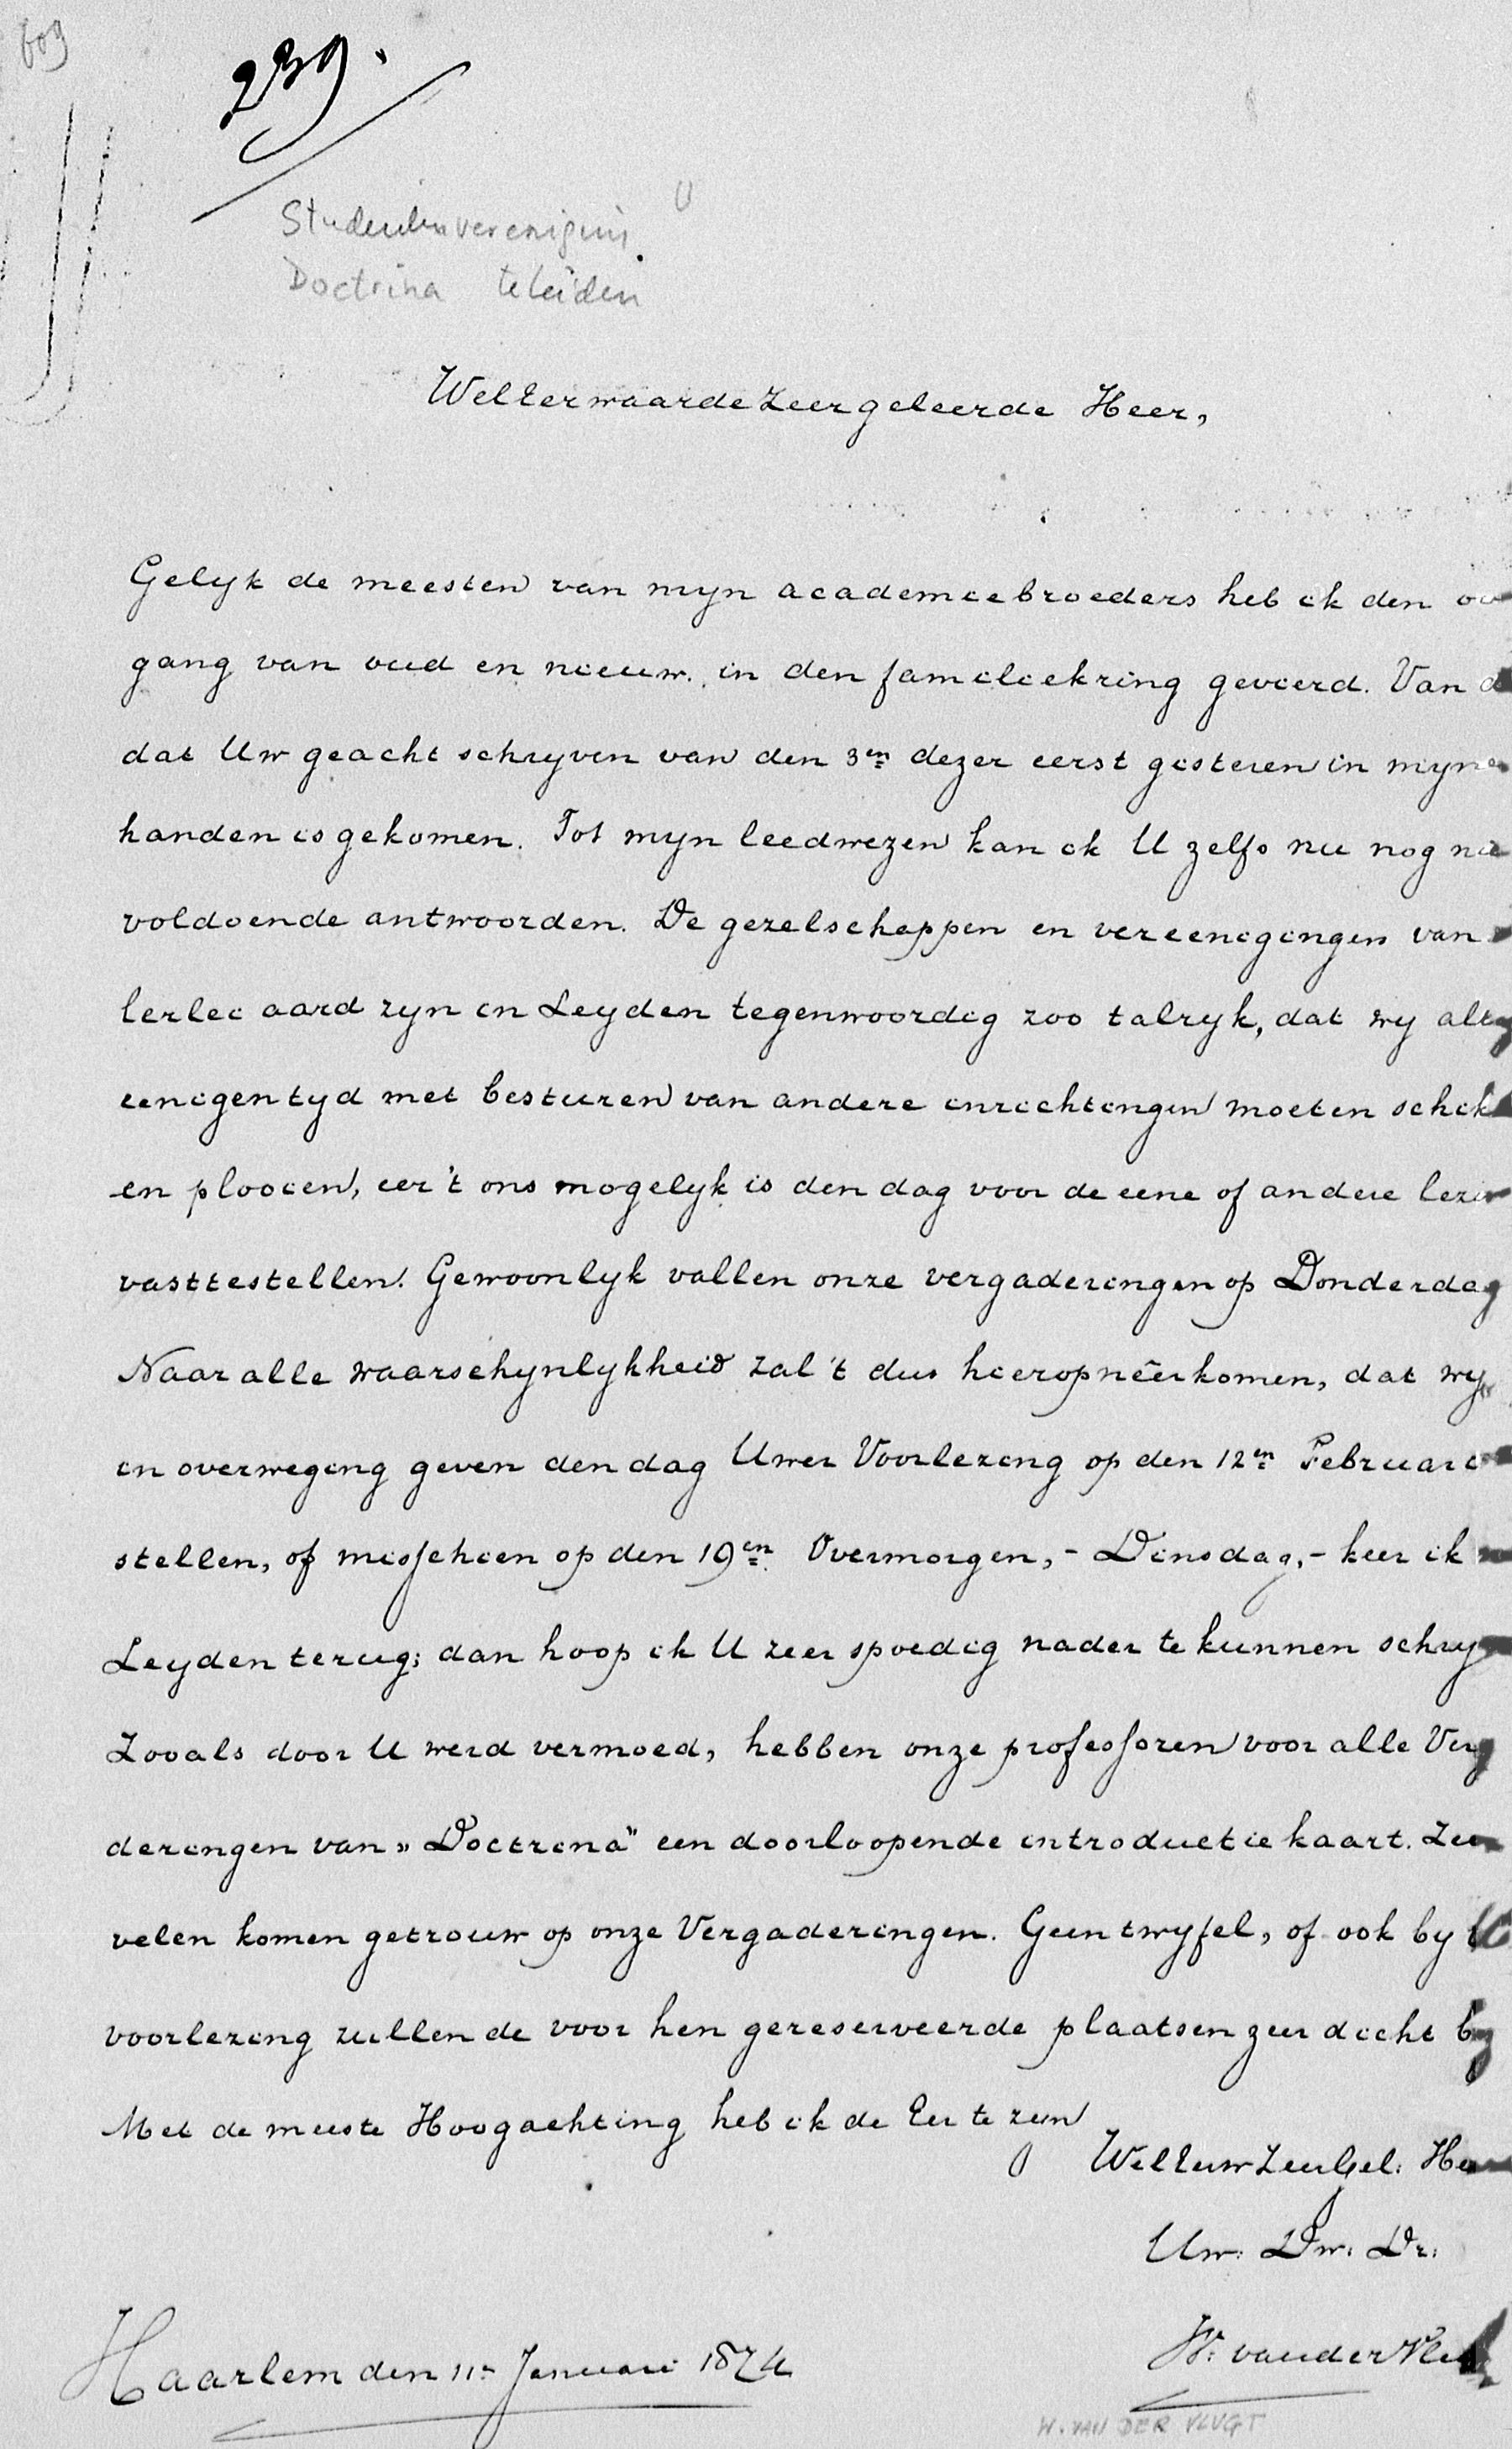 609
239.
Studentenvereniging
Doctrina te Leiden
WelEerwaarde Zeergeleerde Heer,
Gelyk de meesten van myn academiebroeders heb ik den
gang van oud en nieuw in den familiekring gevierd. Van
dat Uw geacht schryven van den 3en dezer eerst gisteren in myne
handen is gekomen. Tot myn leedwezen kan ik U zelfs nu nog
voldoende antwoorden. De gezelschappen en vereenigingen van
lerlei aard zyn in Leyden tegenwoordig zoo talryk, dat wy
eenigen tyd met besturen van andere inrichtingen moeten schik
en plooien, eer 't ons mogelyk is den dag voor de eene of andere
vasttestellen. Gewoonlyk vallen onze vergaderingen op Donderdag
Naar alle waarschynlykheid zal 't dus hierop nêerkomen, dat wy
in overweging geven den dag Uwer Voorlezing op den 12en Februari
stellen, of misschien op den 19en. Overmorgen, - Dinsdag, - keer ik
Leyden terug; dan hoop ik U zeer spoedig nader te kunnen schry
Zooals door U werd vermoed, hebben onze professoren voor alle Verg
deringen van „Doctrina" een doorloopende introductiekaart. Zeer
velen komen getrouw op onze Vergaderingen. Geen twyfel, of ook by
voorlezing zullen de voor hen gereserveerde plaatsen zeer dicht
Met de meeste Hoogachting heb ik de Eer te zyn
WelEerw ZeerGel: Heer
Uw: Dw: Dr:
W: van der Vlugt
Haarlem den 11n Januari 1874
W. VAN DER VLUGT